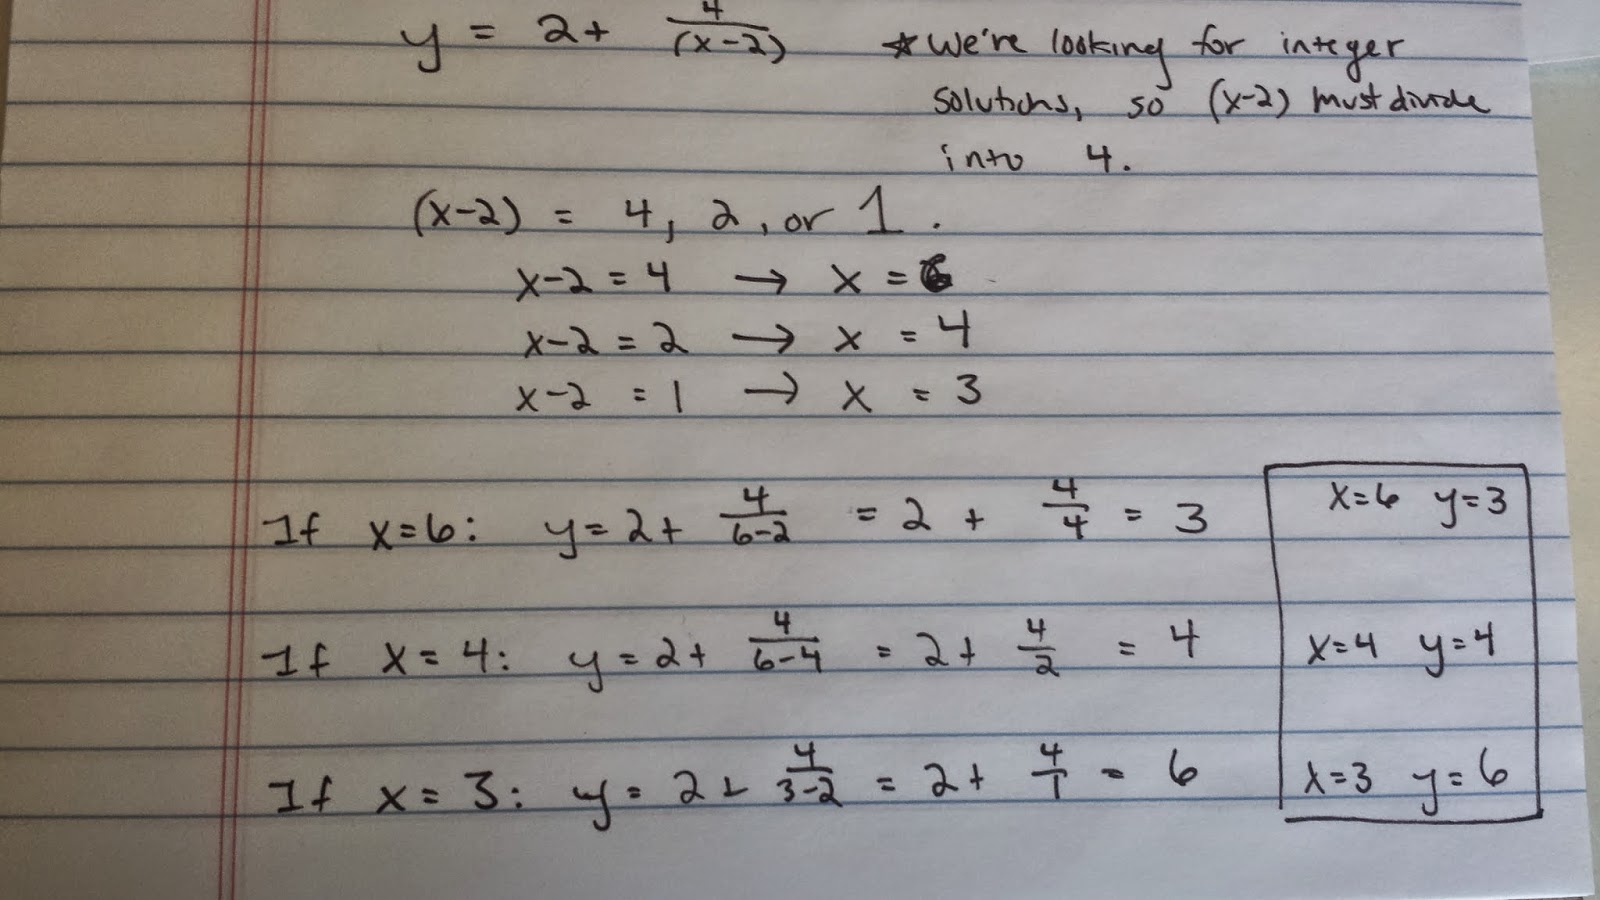 y = 2 + 4/(x-2) ☆ We're looking for integer
solutions, so (x-2) must divide
into 4.
(x-2) = 4, 2, or 1.
x-2 = 4 → x = 6
x-2 = 2 → x = 4
x-2 = 1 → x = 3
If x=6: y = 2 + 4/(6-2) = 2 + 4/4 = 3 x=6 y=3
If x=4: y = 2 + 4/(6-4) = 2 + 4/2 = 4 x=4 y=4
If x=3: y = 2 + 4/(3-2) = 2 + 4/1 = 6 x=3 y=6